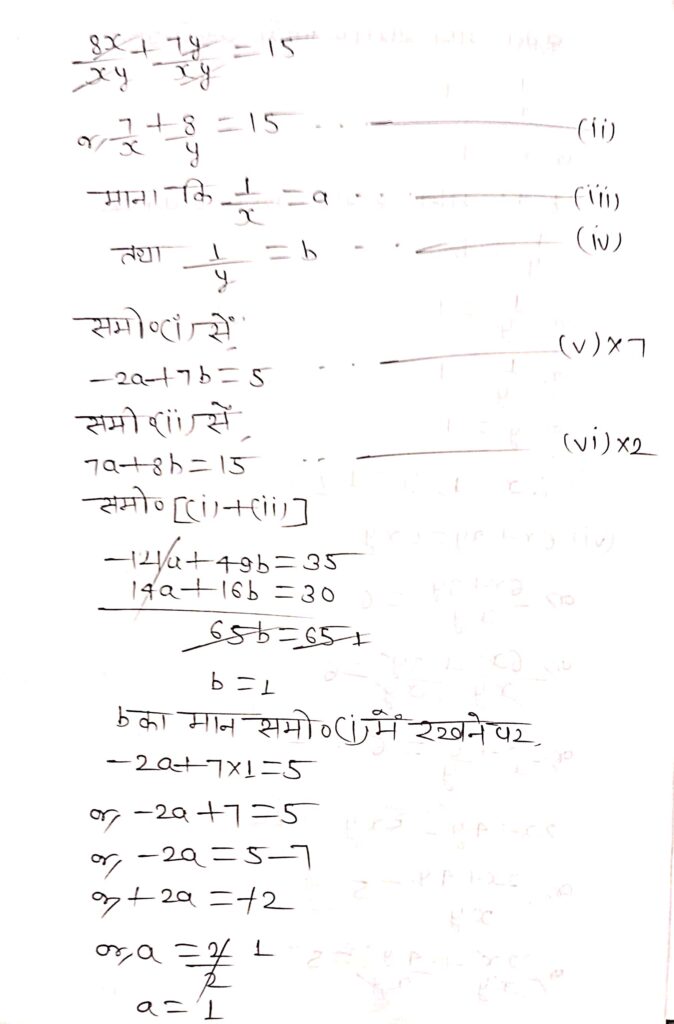 8x/xy + 7y/xy = 15
or, 7/x + 8/y = 15 .. (ii)
माना कि 1/x = a .. (iii)
तथा 1/y = b .. (iv)
समी०(i) से
-2a+7b=5 .. (v)×7
समी (ii) से
7a+8b=15 .. (vi)×2
समी० [(i)+(ii)]
-14a+49b=35
14a+16b=30
65b=65 1
b=1
b का मान समी०(i) में रखने पर,
-2a+7×1=5
or, -2a+7=5
or, -2a=5-7
or, +2a=+2
or, a=2/2 1
a=1